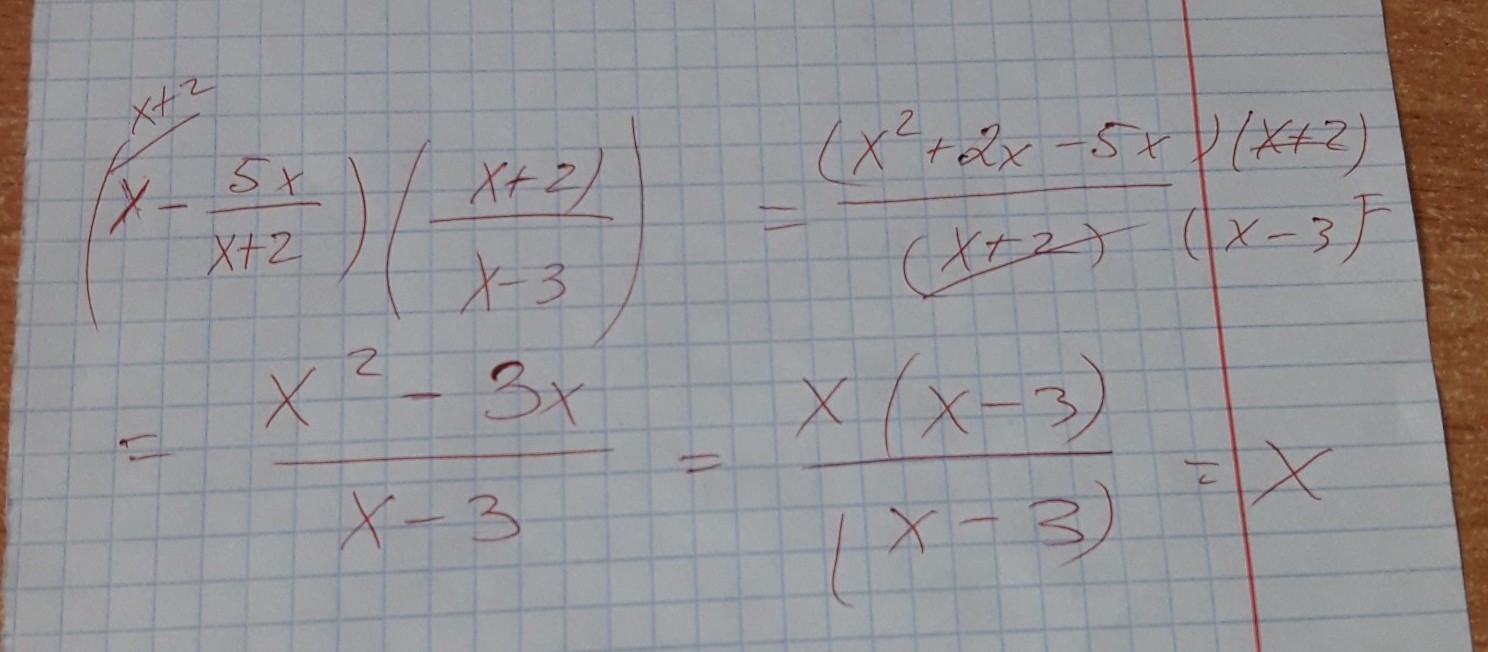 x+2
(x - 5x/(x+2)) ((x+2)/(x-3)) = (x²+2x-5x)(x+2)/((x+2)(x-3)) =
= (x²-3x)/(x-3) = x(x-3)/(x-3) = x